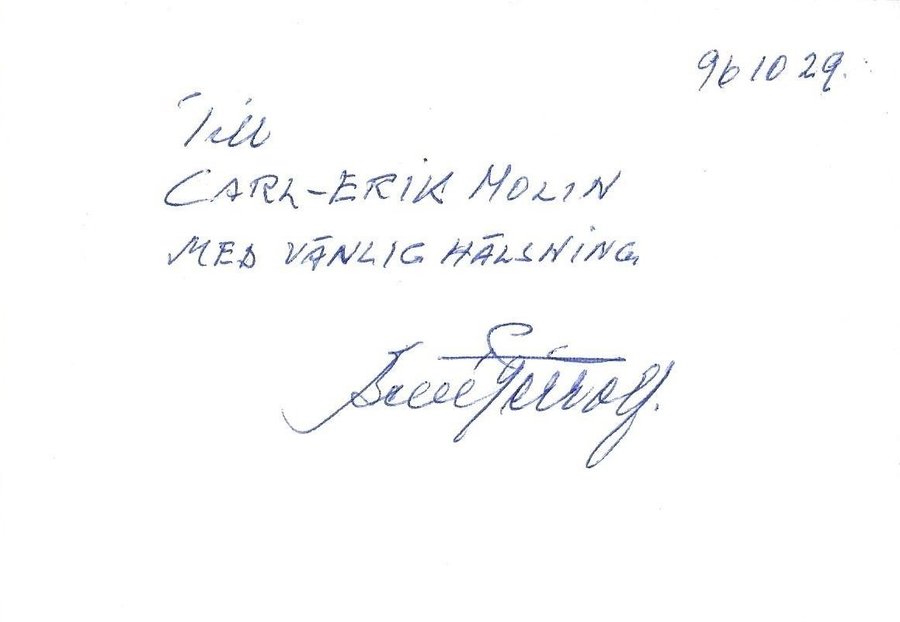 961029.
Till
CARL-ERIK MOLIN
MED VÄNLIG HÄLSNING